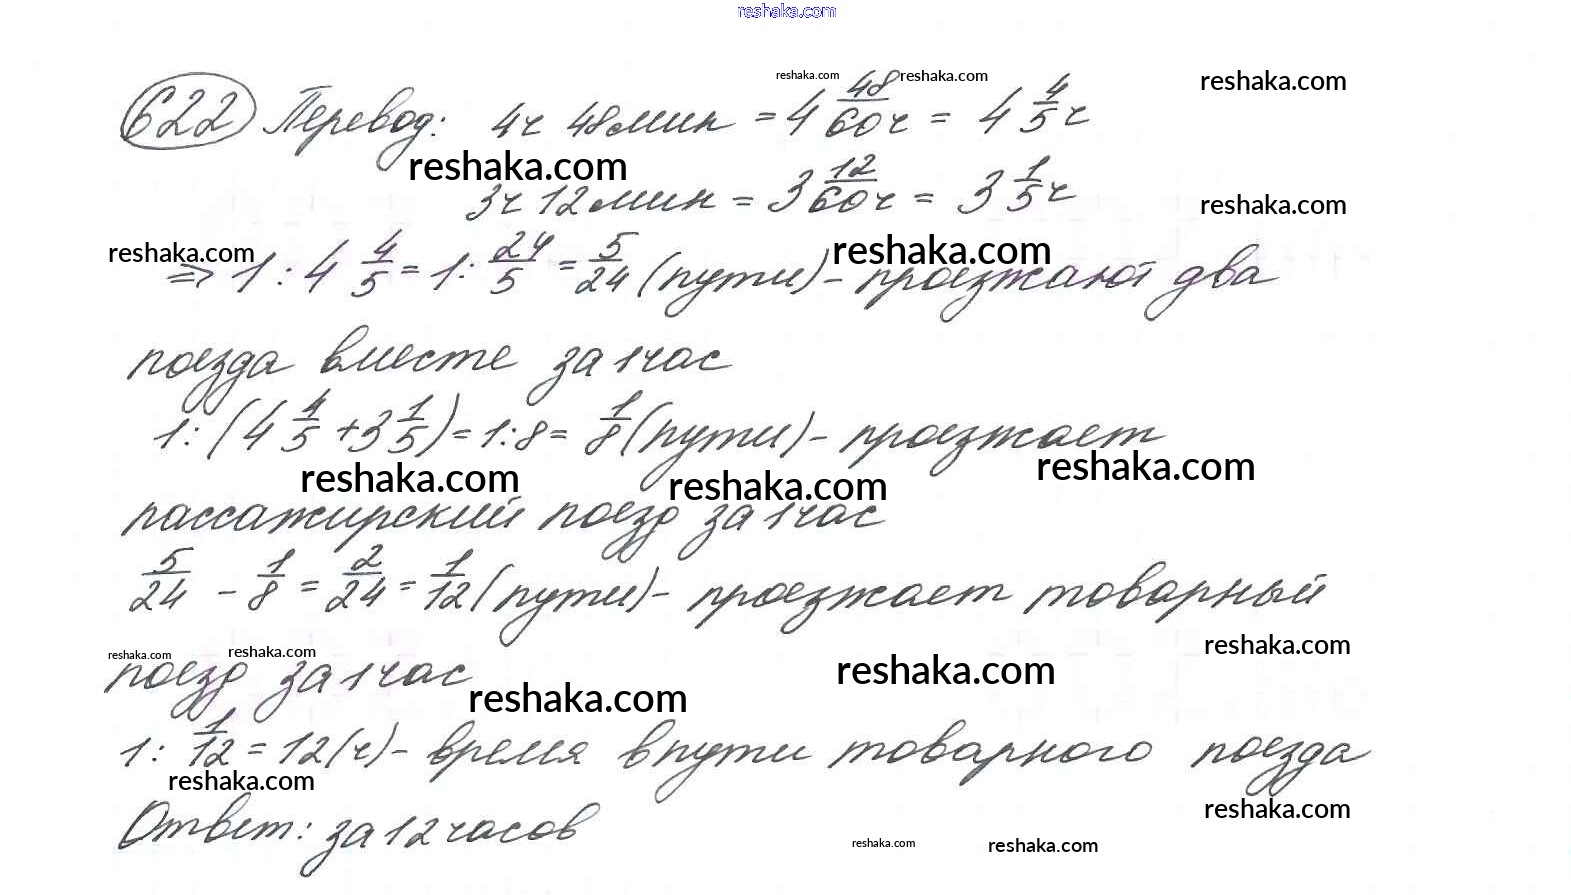 reshaka.com
622 Перевод: 4ч 48мин = 4 48/60 ч = 4 4/5 ч
reshaka.com reshaka.com reshaka.com
reshaka.com
3ч 12мин = 3 12/60 ч = 3 1/5 ч
reshaka.com
reshaka.com reshaka.com
=> 1 : 4 4/5 = 1 : 24/5 = 5/24 (пути) - проезжают два
поезда вместе за 1 час
1 : (4 4/5 + 3 1/5) = 1 : 8 = 1/8 (пути) - проезжает
reshaka.com reshaka.com reshaka.com
пассажирский поезд за 1 час
5/24 - 1/8 = 2/24 = 1/12 (пути) - проезжает товарный
reshaka.com reshaka.com reshaka.com
поезд за 1 час
reshaka.com reshaka.com
1 : 1/12 = 12 (ч) - время в пути товарного поезда
reshaka.com reshaka.com
Ответ: за 12 часов
reshaka.com reshaka.com